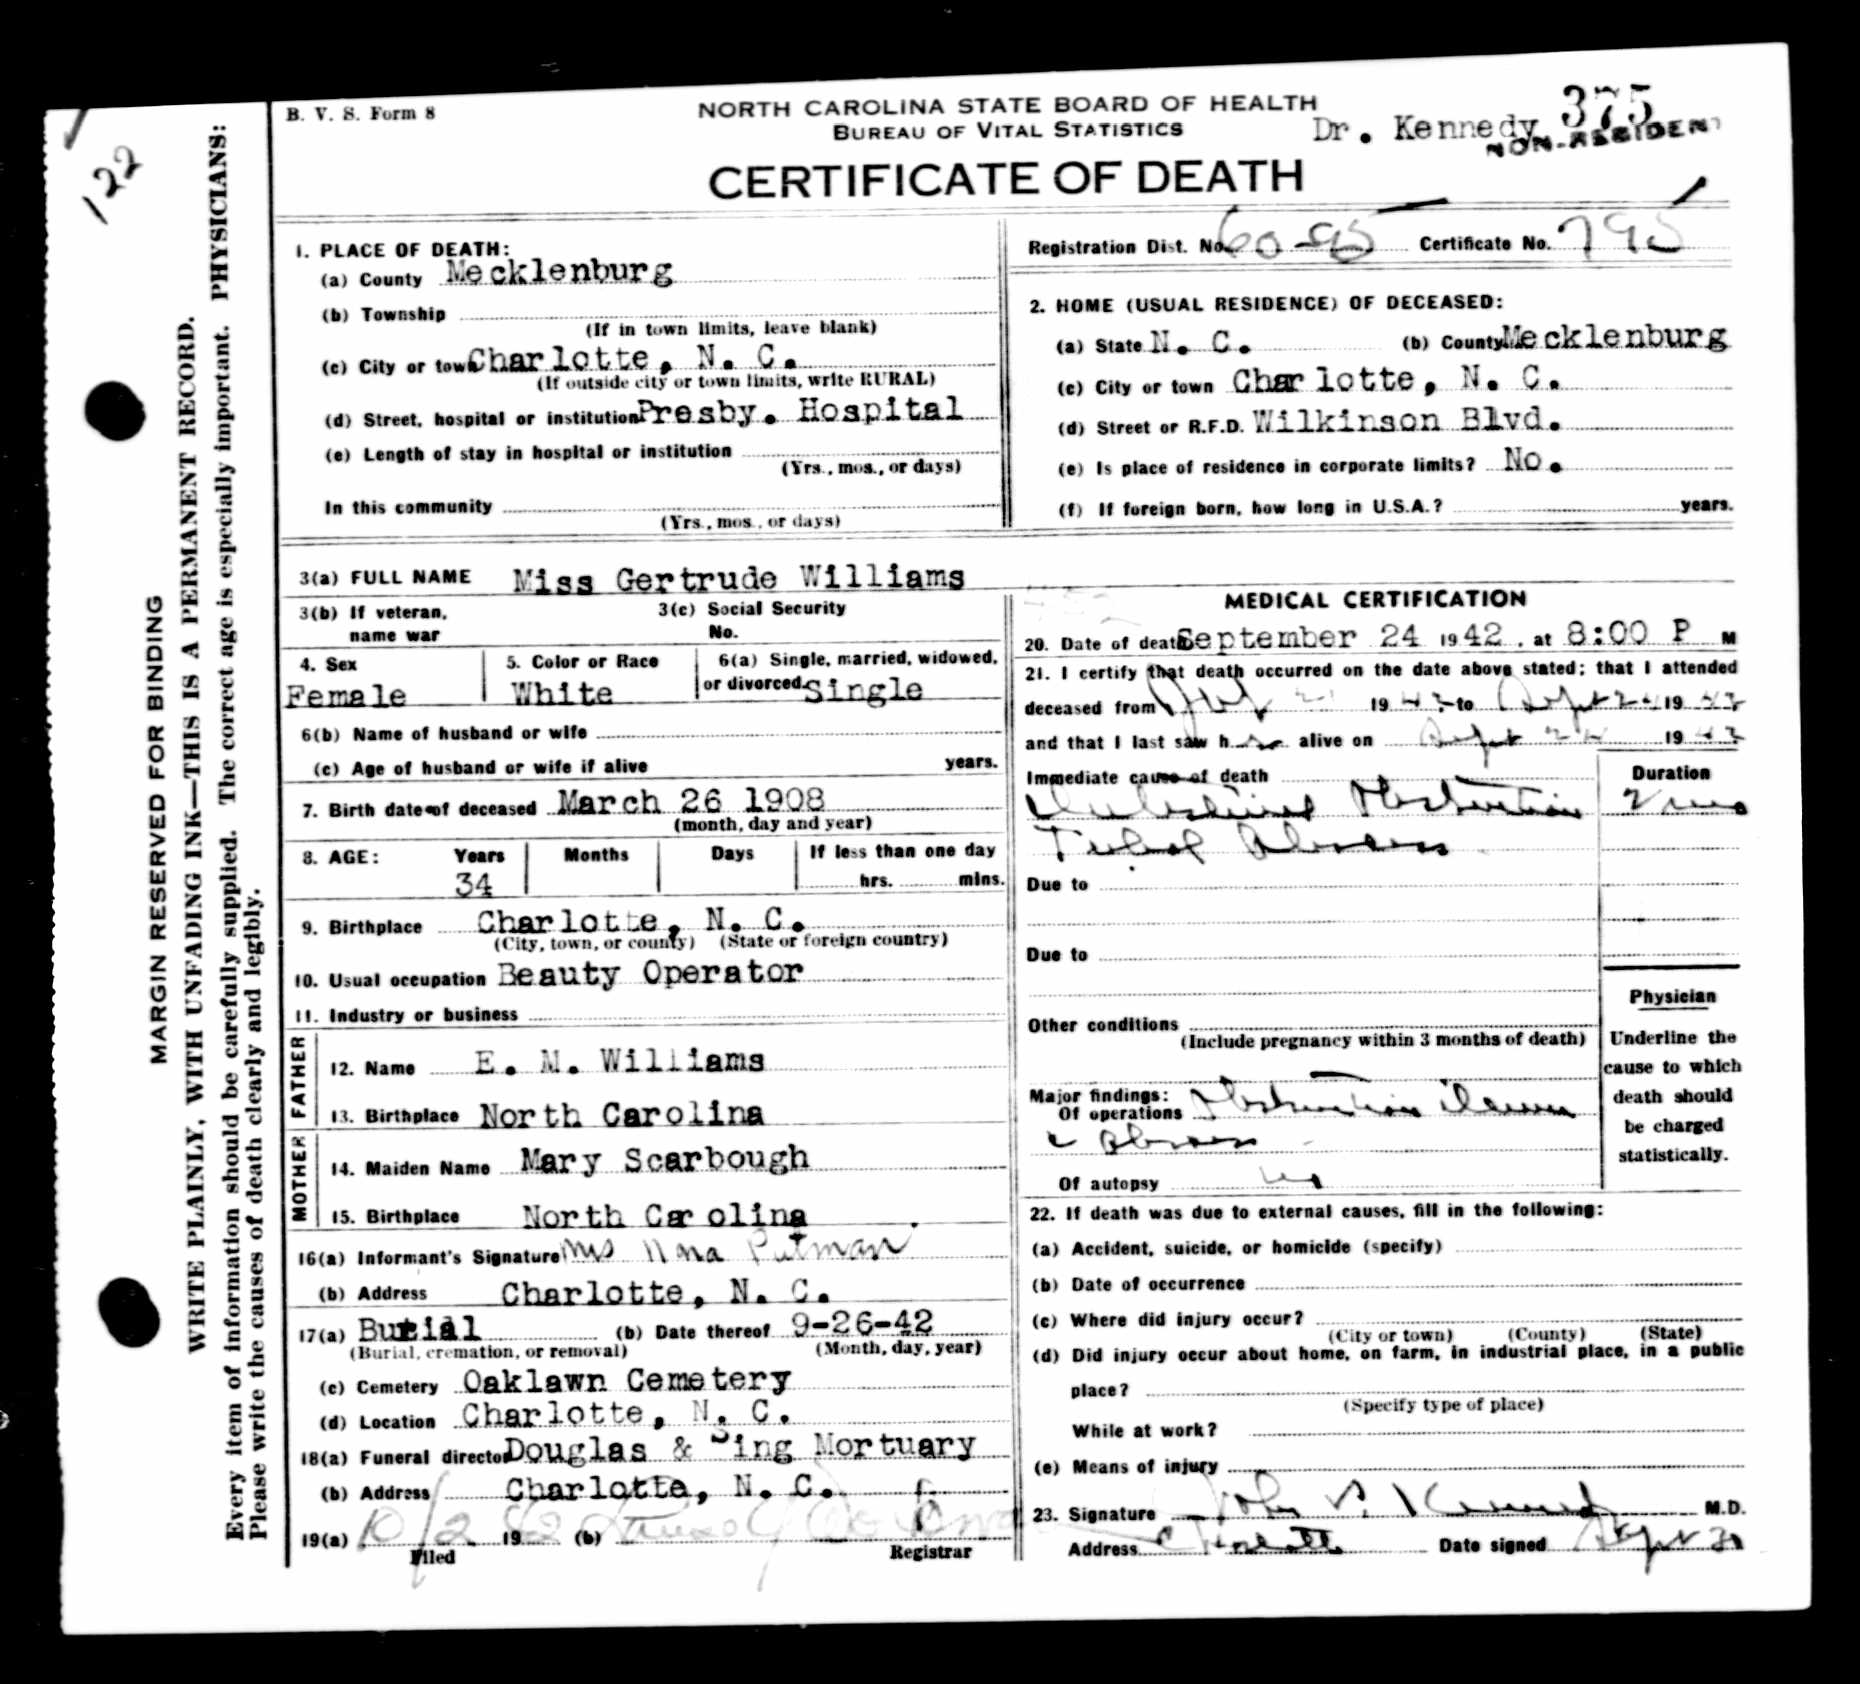 B. V. S. Form 8
NORTH CAROLINA STATE BOARD OF HEALTH
BUREAU OF VITAL STATISTICS
Dr. Kennedy 375
NON-RESIDENT
CERTIFICATE OF DEATH
122
MARGIN RESERVED FOR BINDING
WRITE PLAINLY, WITH UNFADING INK—THIS IS A PERMANENT RECORD.
Every item of information should be carefully supplied. The correct age is especially important. PHYSICIANS:
Please write the causes of death clearly and legibly.
1. PLACE OF DEATH:
(a) County Mecklenburg
(b) Township
(If in town limits, leave blank)
(c) City or town Charlotte, N. C.
(If outside city or town limits, write RURAL)
(d) Street, hospital or institution Presby. Hospital
(e) Length of stay in hospital or institution
(Yrs., mos., or days)
In this community
(Yrs., mos., or days)
Registration Dist. No. 60-95 Certificate No. 795
2. HOME (USUAL RESIDENCE) OF DECEASED:
(a) State N. C. (b) County Mecklenburg
(c) City or town Charlotte, N. C.
(d) Street or R.F.D. Wilkinson Blvd.
(e) Is place of residence in corporate limits? No.
(f) If foreign born, how long in U.S.A.? years.
3(a) FULL NAME Miss Gertrude Williams
3(b) If veteran, name war
3(c) Social Security No.
4. Sex Female
5. Color or Race White
6(a) Single, married, widowed, or divorced. Single
6(b) Name of husband or wife
(c) Age of husband or wife if alive years.
7. Birth date of deceased March 26 1908
(month, day and year)
8. AGE: Years Months Days If less than one day
34 hrs. mins.
9. Birthplace Charlotte, N. C.
(City, town, or county) (State or foreign country)
10. Usual occupation Beauty Operator
11. Industry or business
FATHER
12. Name E. M. Williams
13. Birthplace North Carolina
MOTHER
14. Maiden Name Mary Scarbough
15. Birthplace North Carolina
16(a) Informant's Signature Mrs Nna Putman
(b) Address Charlotte, N. C.
17(a) Burial (b) Date thereof 9-26-42
(Burial, cremation, or removal) (Month, day, year)
(c) Cemetery Oaklawn Cemetery
(d) Location Charlotte, N. C.
18(a) Funeral director Douglas & Sing Mortuary
(b) Address Charlotte, N. C.
19(a) 10/2 1942 (b)
Filed Registrar
MEDICAL CERTIFICATION
20. Date of death September 24 1942, at 8:00 P M
21. I certify that death occurred on the date above stated; that I attended
deceased from 1942, to Sept 24 1942
and that I last saw her alive on Sept 24 1942
Immediate cause of death Duration
Intestinal Obstruction
Tubal Abscess
Due to
Due to
Other conditions
(Include pregnancy within 3 months of death)
Major findings:
Of operations Obstruction Ileum
c Abscess
Of autopsy
Physician
Underline the
cause to which
death should
be charged
statistically.
22. If death was due to external causes, fill in the following:
(a) Accident, suicide, or homicide (specify)
(b) Date of occurrence
(c) Where did injury occur?
(City or town) (County) (State)
(d) Did injury occur about home, on farm, in industrial place, in a public
place?
(Specify type of place)
While at work?
(e) Means of injury
23. Signature John P. Kennedy M.D.
Address Charlotte Date signed Sept 30